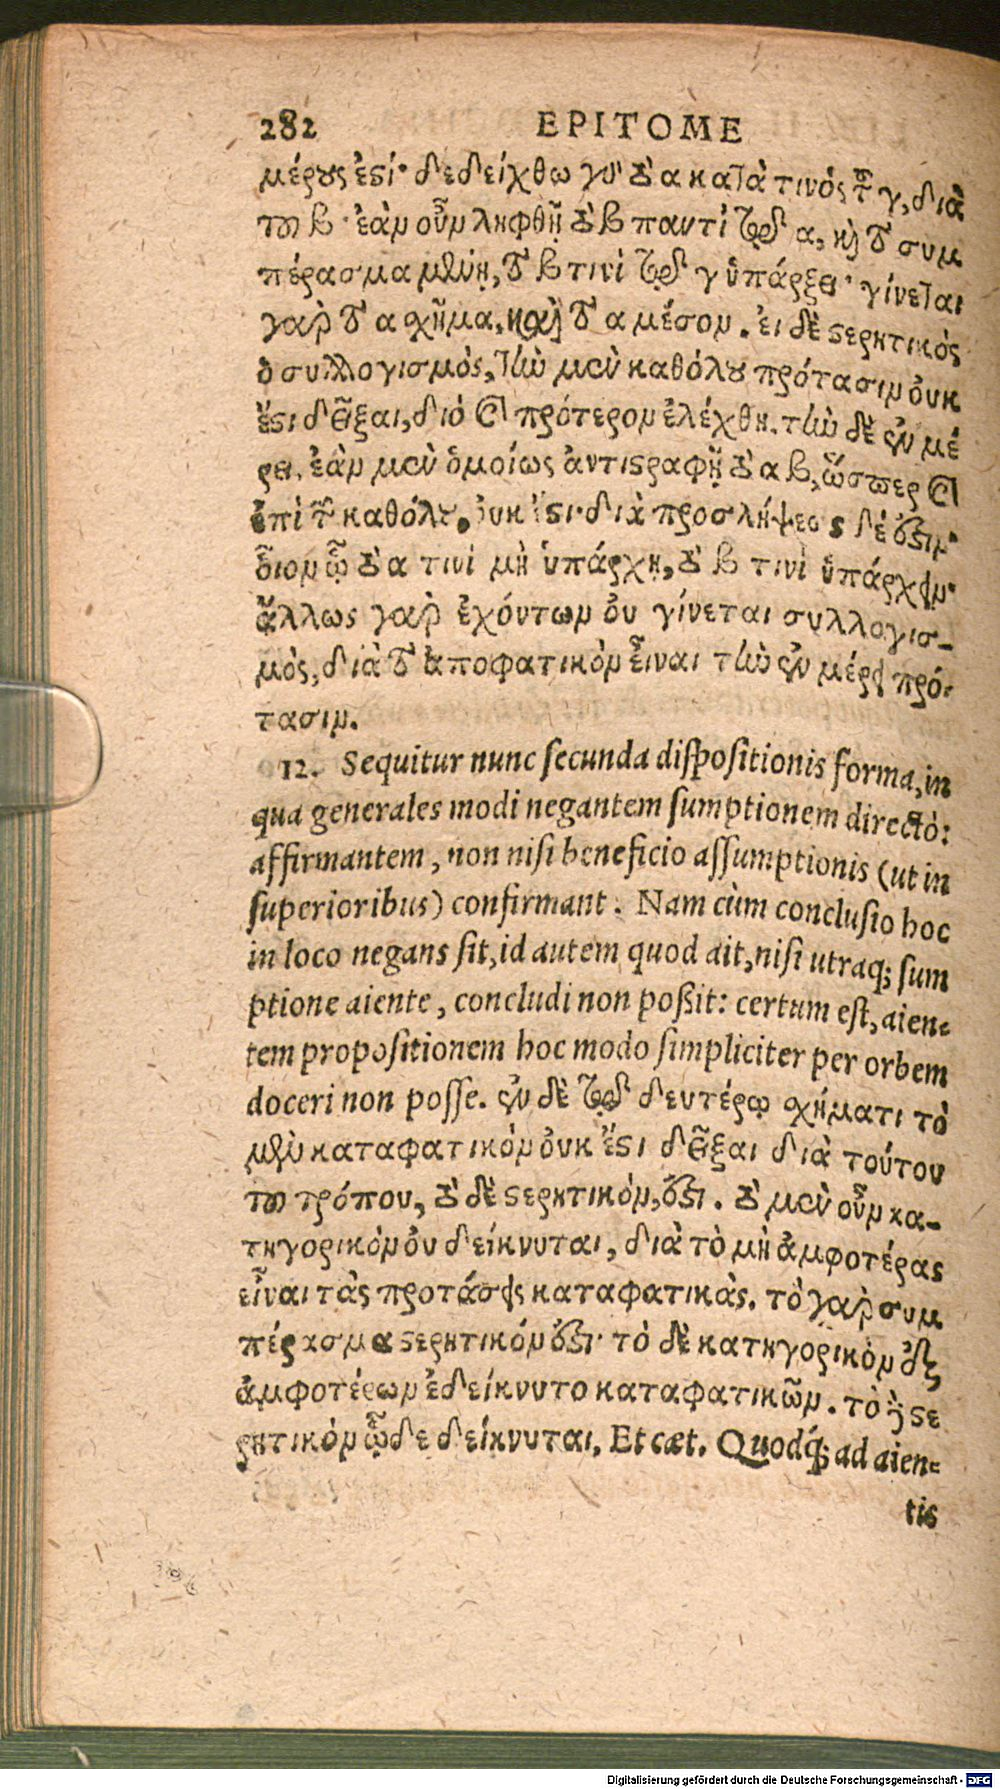 282 EPITOME
μέρους ἐστί· δεδείχθω γὰρ τὸ α κατὰ τινὸς τοῦ γ, διὰ
τοῦ β· ἐὰν οὖν ληφθῇ τὸ β παντὶ τῷ α, καὶ τὸ συμ
πέρασμα μένῃ, τὸ β τινὶ τῷ γ ὑπάρξει· γίνεται
γὰρ τὸ α σχῆμα, καὶ τὸ α μέσον. εἰ δὲ στερητικὸς
ὁ συλλογισμὸς, τὴν μὲν καθόλου πρότασιν οὐκ
ἔστι δεῖξαι, διὸ καὶ πρότερον ἐλέχθη. τὴν δὲ ἐν μέ
ρει, ἐὰν μὲν ὁμοίως ἀντιστραφῇ τὸ α β, ὥσπερ καὶ
ἐπὶ τῶν καθόλου, οὐκ ἔστι· διὰ προσλήψεως δέ ἐστιν·
οἷον ᾧ τὸ α τινὶ μὴ ὑπάρχῃ, τὸ β τινὶ ὑπάρχειν·
ἄλλως γὰρ ἐχόντων οὐ γίνεται συλλογισ-
μὸς, διὰ τὸ ἀποφατικὸν εἶναι τὴν ἐν μέρει πρό-
τασιν.
12. Sequitur nunc secunda dispositionis forma, in
qua generales modi negantem sumptionem directò:
affirmantem, non nisi beneficio assumptionis (ut in
superioribus) confirmant. Nam cùm conclusio hoc
in loco negans sit, id autem quod ait, nisi utraq; sum
ptione aiente, concludi non poßit: certum est, aien-
tem propositionem hoc modo simpliciter per orbem
doceri non posse. ἐν δὲ τῷ δευτέρῳ σχήματι τὸ
μὲν καταφατικὸν οὐκ ἔστι δεῖξαι διὰ τούτου
τοῦ τρόπου, τὸ δὲ στερητικὸν, ἔστι. τὸ μὲν οὖν κα-
τηγορικὸν οὐ δείκνυται, διὰ τὸ μὴ ἀμφοτέρας
εἶναι τὰς προτάσεις καταφατικὰς. τὸ γὰρ συμ
πέρασμα στερητικόν ἐστι· τὸ δὲ κατηγορικὸν ἐξ
ἀμφοτέρων ἐδείκνυτο καταφατικῶν. τὸ δὲ στε
ρητικὸν ὧδε δείκνυται. Et cæt. Quodq́; ad aien-
tis
Digitalisierung gefördert durch die Deutsche Forschungsgemeinschaft - DFG